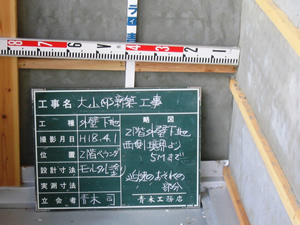 8 7 6 5 4 3 2 1
工事名 大山邸新築工事
工種 外壁下地
撮影月日 H18.4.1
位置 2階ベランダ
設計寸法 モルタル塗り
実測寸法
立会者 青木 司
略図
2階外壁下地
西側 端部より
5Mまで
延焼のおそれの
部分
青木工務店